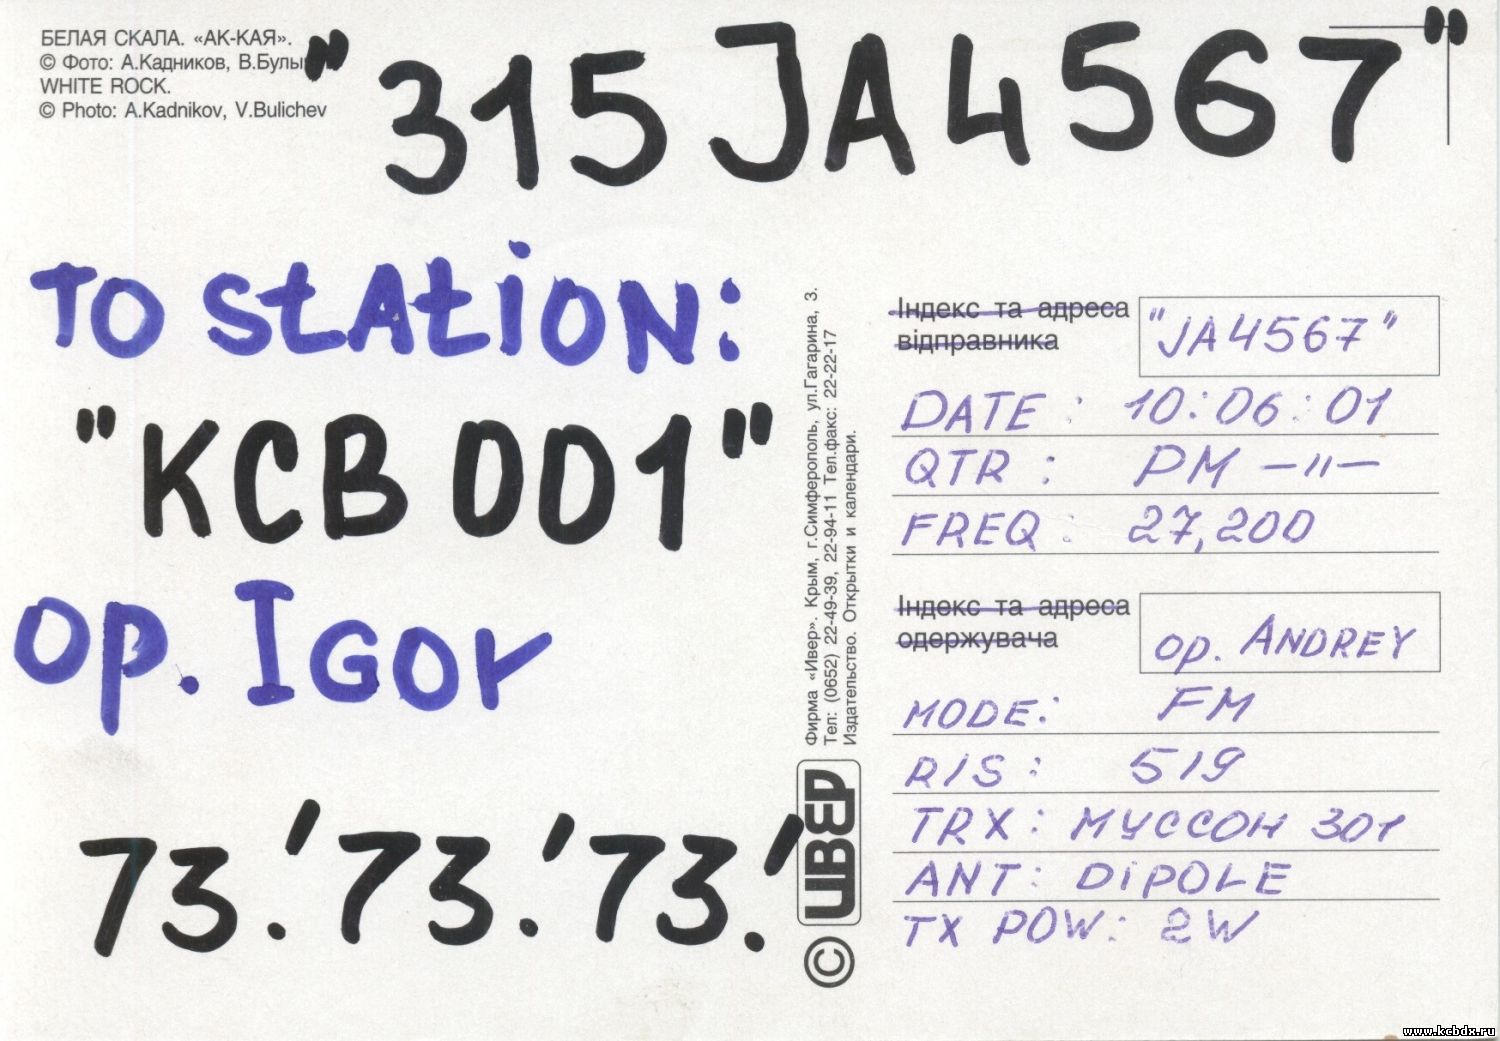 БЕЛАЯ СКАЛА. «АК-КАЯ».
© Фото: А.Кадников, В.Булы
WHITE ROCK.
© Photo: A.Kadnikov, V.Bulichev
"315 JA4567"
TO StAtiON:
"KCB 001"
op. Igor
73.'73.'73.'
Фирма «Ивер». Крым, г.Симферополь, ул.Гагарина, 3.
Тел: (0652) 22-49-39, 22-94-11 Тел.факс: 22-22-17
Издательство. Открытки и календари.
ИВЕР
©
Індекс та адреса
відправника
"JA4567"
DATE: 10:06:01
QTR: PM —"—
FREQ: 27,200
Індекс та адреса
одержувача
op. ANDREY
MODE: FM
R/S: 519
TRX: МУССОН 301
ANT: DiPOLE
TX POW: 2W
www.kcbdx.ru